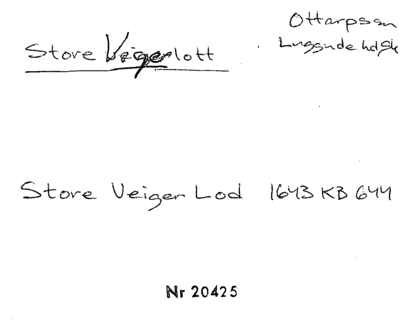 Store Veigerlott
Ottarpssn
Luggude hd Sk
Store Veiger Lod 1643 KB 644
Nr 20425